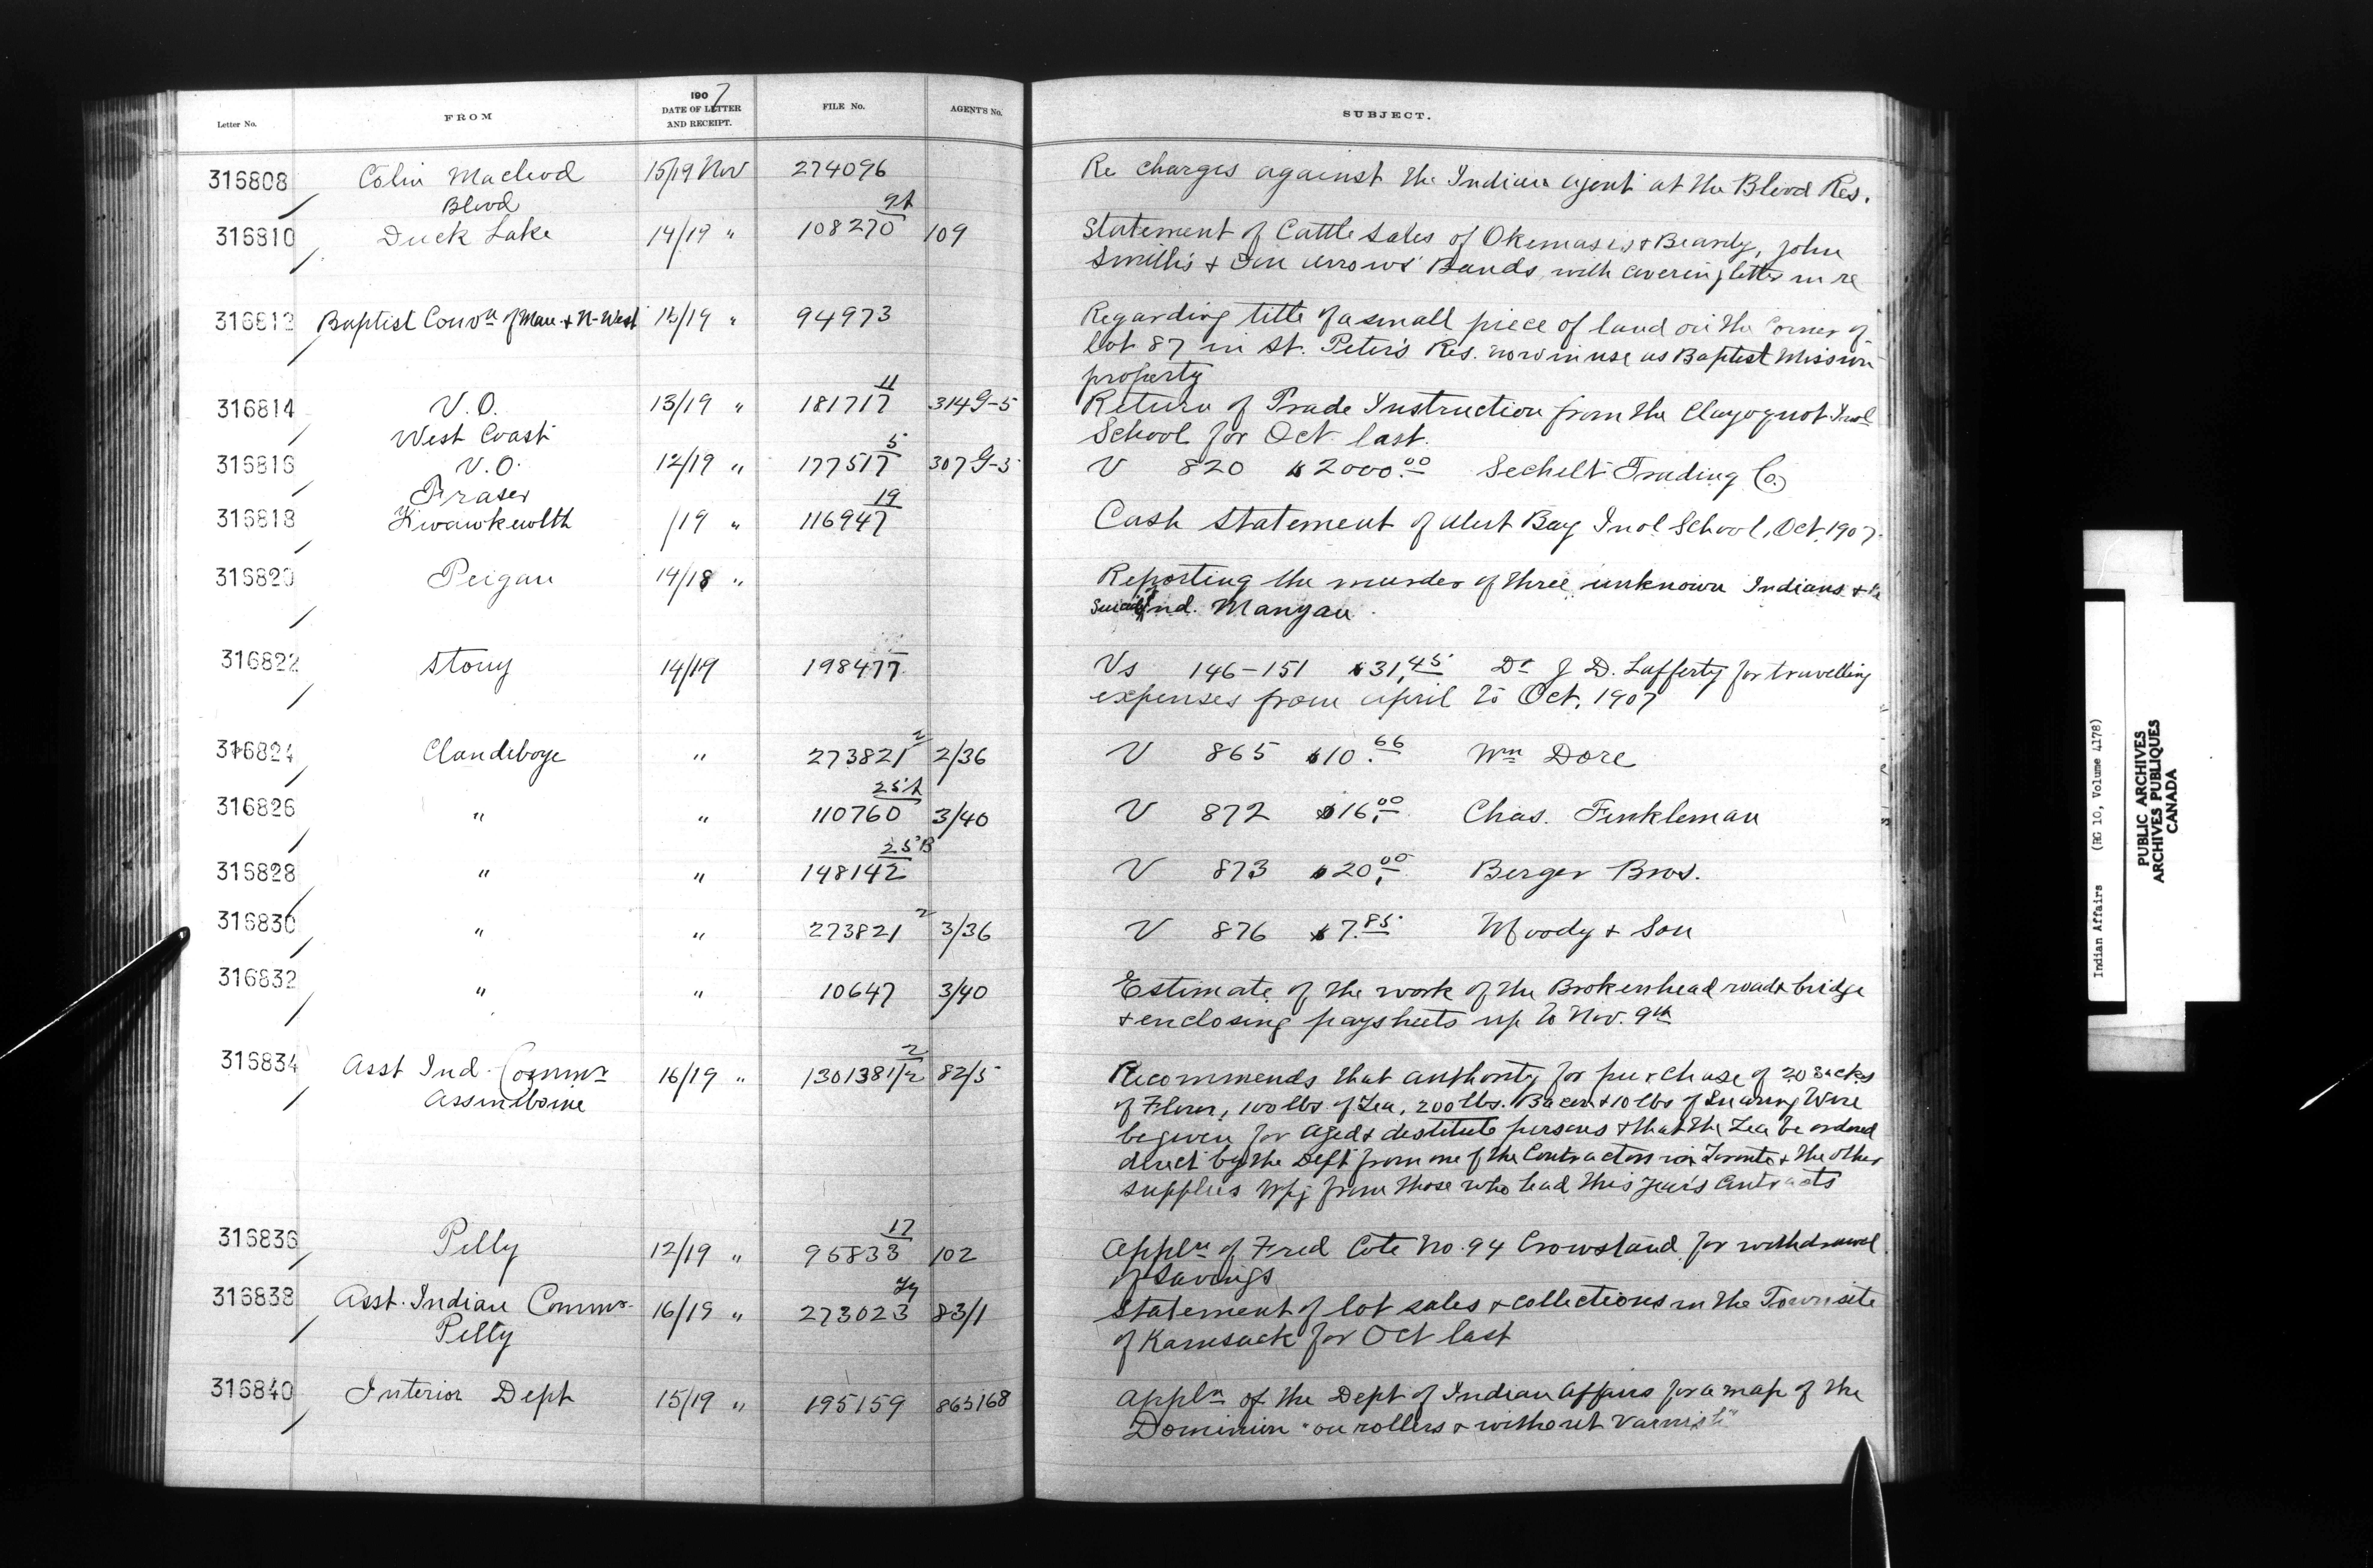 1907
Letter No. FROM DATE OF LETTER AND RECEIPT. FILE No. AGENT'S No. SUBJECT.
316808 Colin Macleod 15/19 Nov 274096 Re charges against the Indian Agent at the Blood Res.
Blood
316810 Duck Lake 14/19 " 108270 109 Statement of Cattle Sales of Okemasis & Beardy, John
Smith's & One Arrows' Bands with covering letter in re
316812 Baptist Convn of Man. & N-West /19 " 94973 Regarding title of a small piece of land on the Corner of
Lot 87 in St. Peter's Res. now in use as Baptist Mission
property
316814 V.O. 13/19 " 181717 11 314 G-5 Return of Trade Instruction from the Clayoquot Indl
West Coast School for Oct last.
316816 V.O. 12/19 " 177517 5 307 G-3 V 820 $2000.00 Sechelt Trading Co.
Fraser
316818 Kwawkewlth /19 " 116947 19 Cash Statement of Alert Bay Indl School, Oct. 1907.
316820 Peigan 14/18 " Reporting the murder of three unknown Indians & the
Suicide of Ind. Manyan.
316822 Stony 14/19 198477 Vs 146-151 $31.45 Dr J D. Lafferty for travelling
expenses from April to Oct. 1907
316824 Clandeboye " 273821 2 2/36 V 865 $10.66 Wm Dore
316826 " " 110760 25A 3/40 V 872 $16.00 Chas. Finkleman
316828 " " 148142 25B V 873 $20.00 Berger Bros.
316830 " " 273821 2 3/36 V 876 $7.85 Moody & Son
316832 " " 10647 3/40 Estimate of the work of the Brokenhead road & bridge
& enclosing paysheets up to Nov. 9th
316834 Asst Ind. Commr 16/19 " 130138 1/2 2 82/5 Recommends that authority for purchase of 20 sacks
Assiniboine of Flour, 100 lbs. of Tea, 200 lbs. Bacon & 10 lbs of Snaring Wire
be given for Aged & destitute persons & that the Tea be ordered
direct by the Dept from one of the Contractors in Toronto & the other
supplies Wpg from those who had this year's Contracts
316836 Pelly 12/19 " 96833 17 102 Appln of Fred Cote No. 94 Crowstand for withdrawal
of Savings
316838 Asst. Indian Commr 16/19 " 273023 83/1 Statement of lot sales & collections in the Townsite
Pelly of Kamsack for Oct last
316840 Interior Dept 15/19 " 195159 865168 Appln of the Dept of Indian Affairs for a map of the
Dominion "on rollers & without varnish"
Indian Affairs (RG 10, Volume 4178)
PUBLIC ARCHIVES
ARCHIVES PUBLIQUES
CANADA